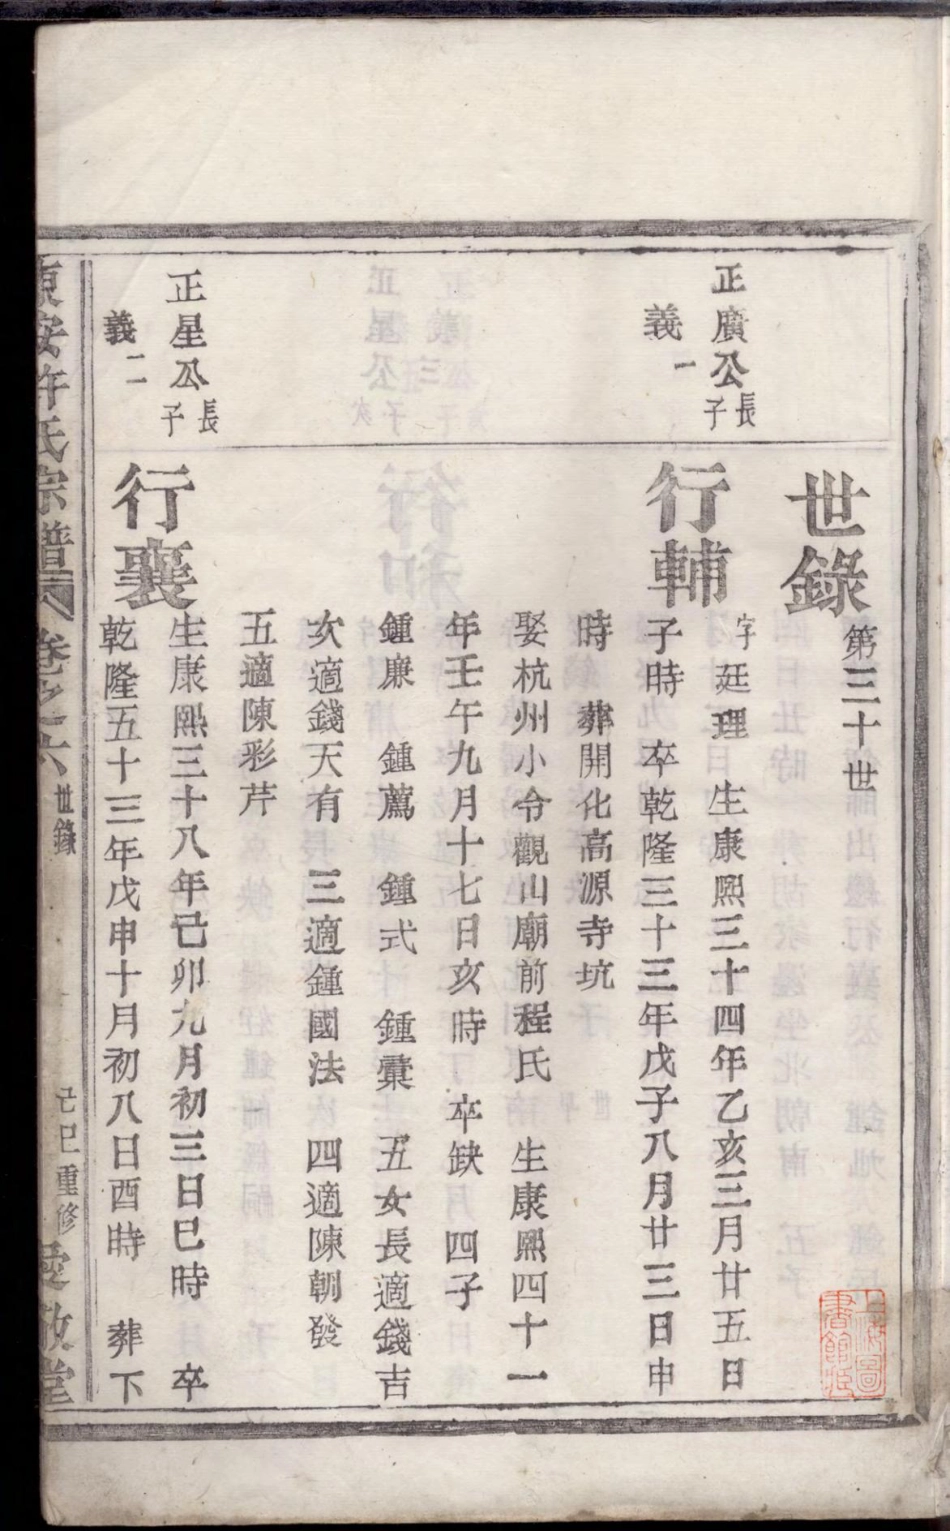 世錄 第三十世
正廣公長子
義一
行輔
字廷理 生康熙三十四年乙亥三月廿五日
子時 卒乾隆三十三年戊子八月廿三日申
時 葬開化高源寺坑
娶杭州小令觀山廟前程氏 生康熙四十一
年壬午九月十七日亥時 卒缺 四子
鍾廉 鍾薦 鍾式 鍾彙 五女長適錢吉
次適錢天有 三適鍾國法 四適陳朝發
五適陳彩芹
正星公長子
義二
行襄
生康熙三十八年己卯九月初三日巳時 卒
乾隆五十三年戊申十月初八日酉時 葬下
東安許氏宗譜 卷之六 世錄 己巳重修 愛敬堂
上海圖書館藏